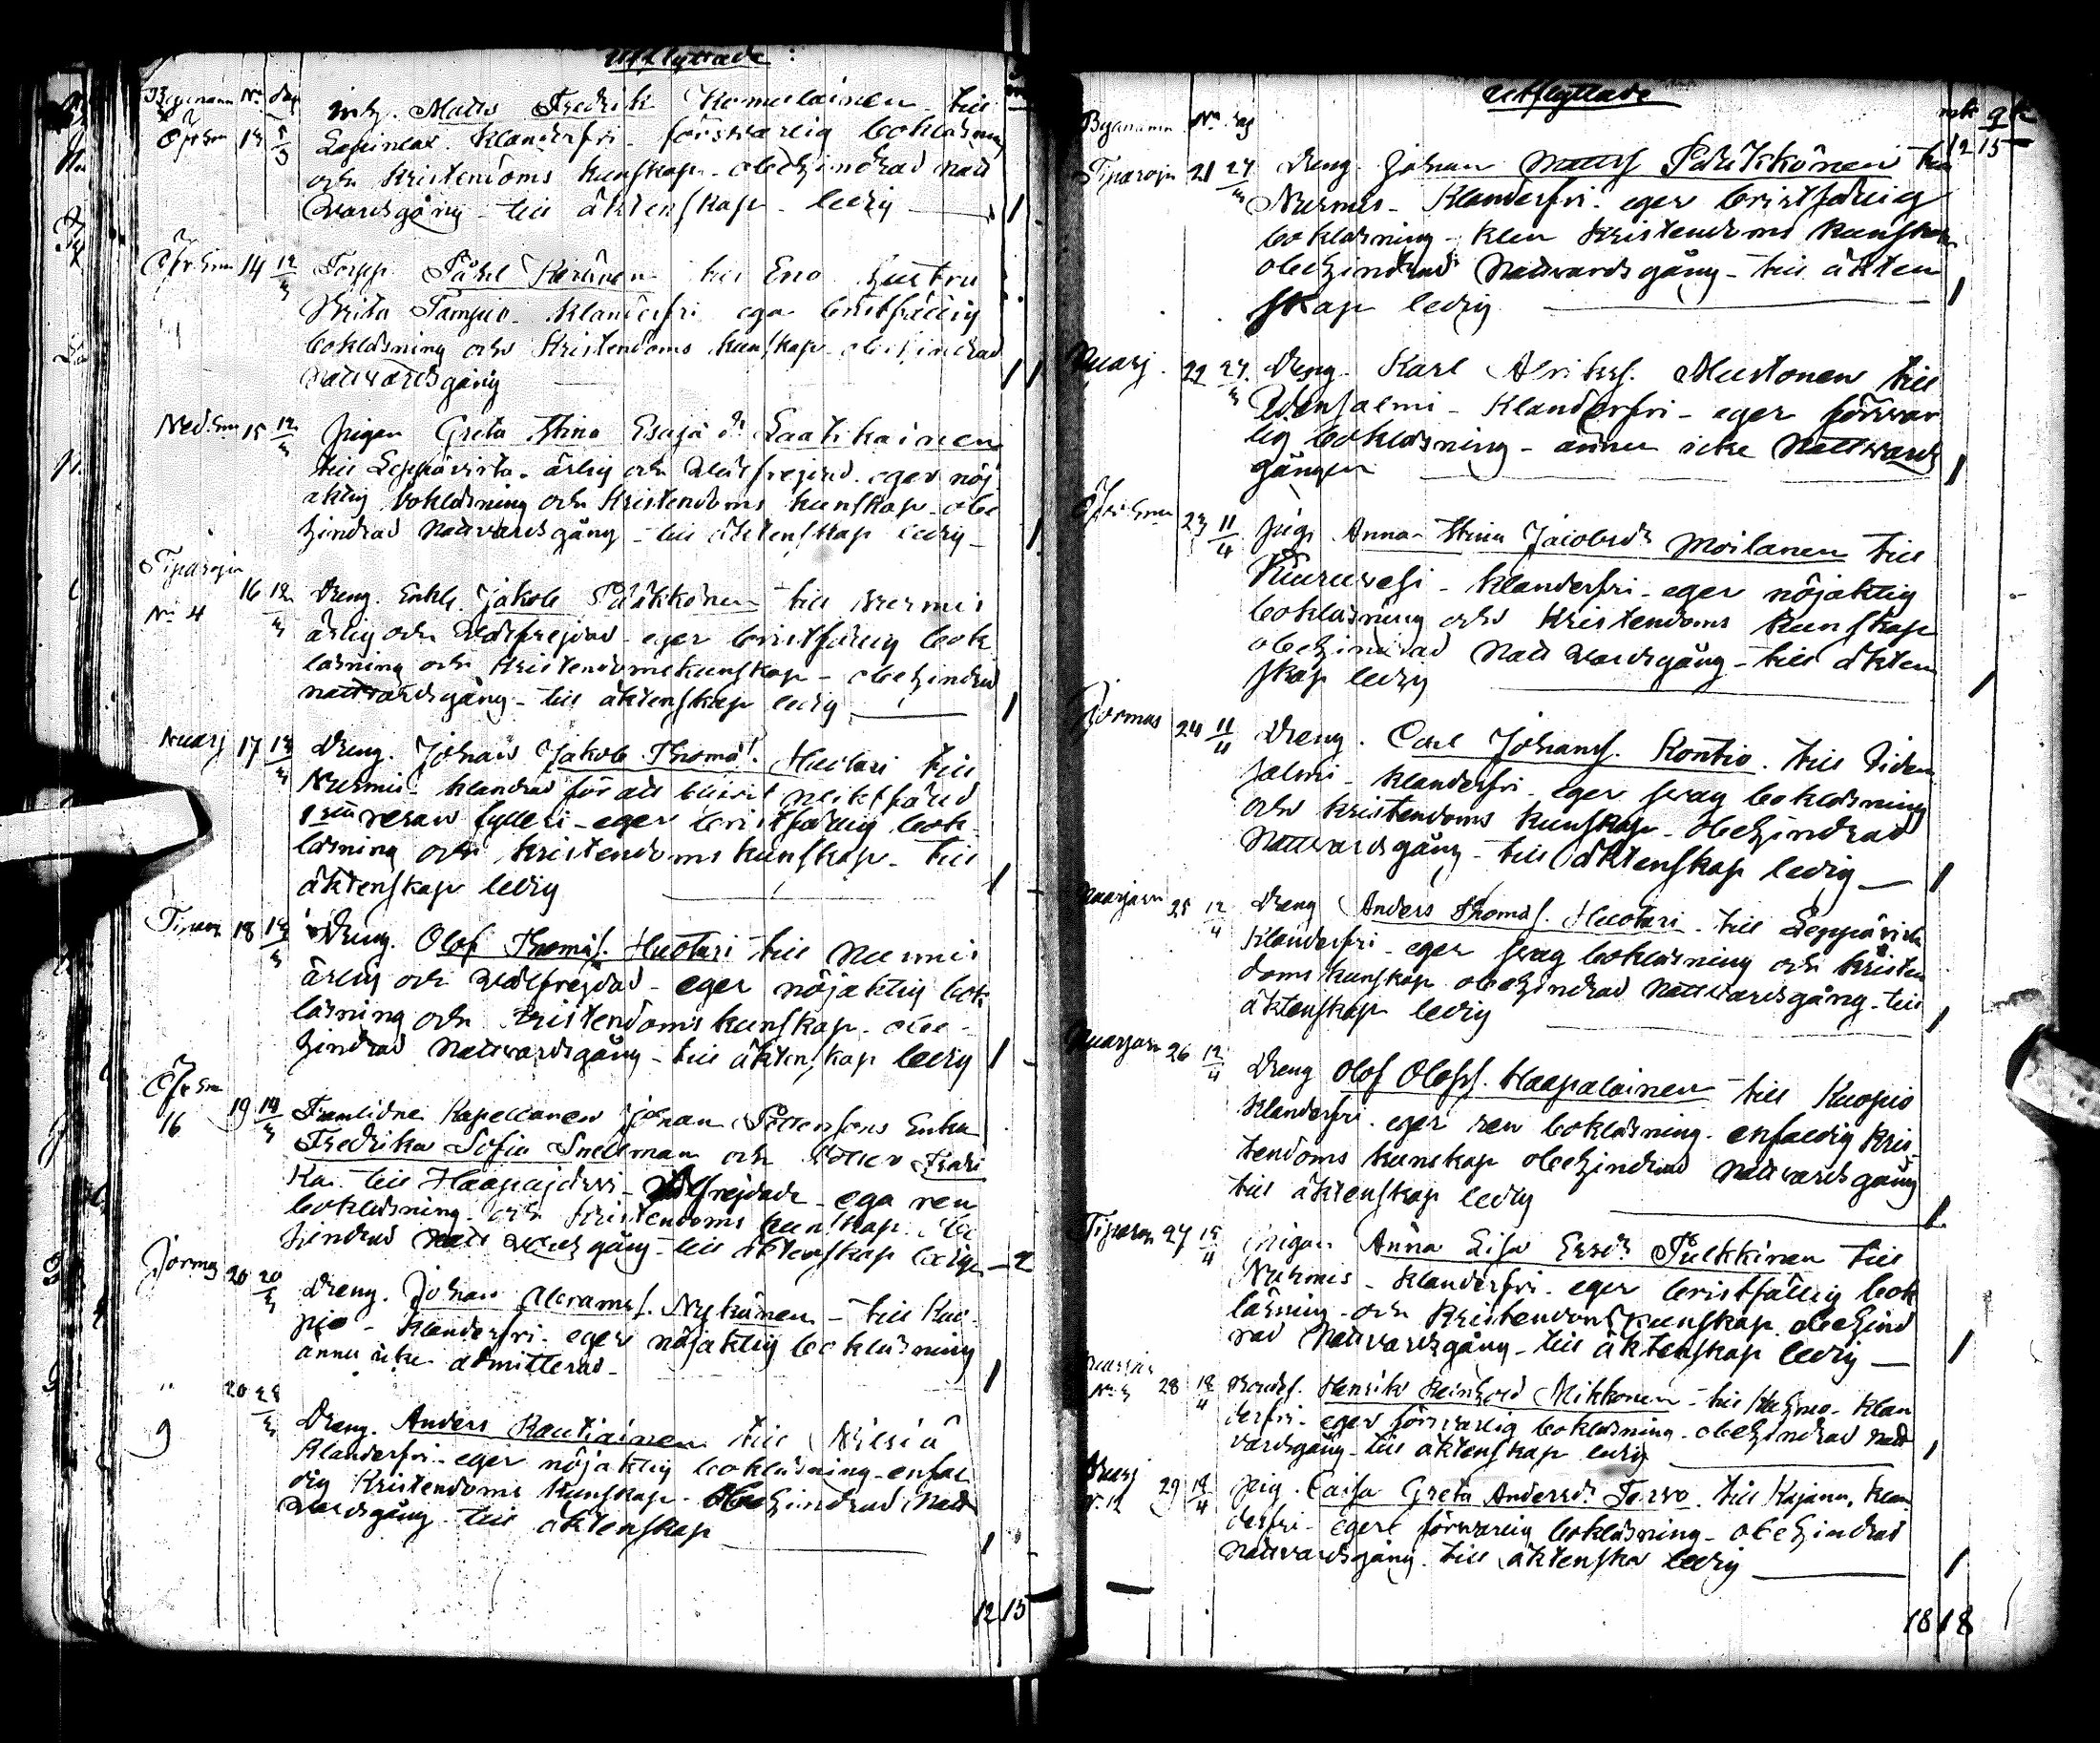 Utflyttade
Byanamn No dag
Öfr Sm 13 5/3 Matts Fredrik Komulainen till
Klanderfri - försvarlig bokläsning
och Kristendoms kunskap - obehindrad natt
vardsgång - till äktenskap ledig 1
Öfr Sm 14 12/3 Påhl Keränen till Eno hustru
Brita Tampio - klanderfri ega bristfällig
bokläsning och Kristendoms kunskap obehindrad
nattvardsgång 1 1
Ned. Sm 15 12/3 Pigan Greta Stina Esajæ dr Laatikainen
till Leppävirta - ärlig och välfrejdad - eger nöj
aktig bokläsning och Kristendoms kunskap - obe
hindrad nattvardsgång - till äktenskap ledig - 1
Tipasoja
No 4 16 12/3 Dreng. Enkl. Jakob Pääkkönen till Nurmis
ärlig och välfrejdad - eger bristfällig bok
läsning och Kristendomskunskap - obehindrad
nattvardsgång - till äktenskap ledig 1
Nuasj 17 13/3 Dreng. Johan Jakob Thomæs. Huotari till
Nurmis - klandrad för att blifvit pliktfäld
resan fylleri - eger bristfällig bok
läsning och Kristendoms kunskap - till
äktenskap ledig 1
18 13/3 Dreng. Olof Thomæs. Huotari till Nurmis
ärlig och välfrejdad - eger nöjaktig bok
läsning och Kristendoms kunskap - obe-
hindrad nattvardsgång - till äktenskap ledig 1
Öfr Sm
16 19 14/3 Framlidne Kapellanen Johan Enka
Fredrika Sofia Snellman och dotter Fredri
ka till Haapajärvi - välfrejdade - ega ren
bokläsning och Kristendoms kunskap obe
hindrad natt vardsgång - till äktenskap lediga - 2
Jormas 20 20/3 Dreng. Johan Abrams. Nykänen - till Kuo-
pio - klanderfri - eger nöjaktig bokläsning
ännu icke admitterad - 1
" 9 20 28/3 Dreng. Anders Rautiainen till
Klanderfri - eger nöjaktig bokläsning - enfal
dig Kristendoms kunskap - obehindrad natt
vardsgång till äktenskap 1
12 15
Utflyttade
Byanamn No dag mk qk
12 15
Tipasoja 21 27/3 Dreng Johan Matts Pääkkönen till
Nurmis - Klanderfri - eger bristfällig
bokläsning - klen Kristendoms kunskap
obehindrad nattvardsgång - till äkten
skap ledig 1
Nuasj. 22 27/3 Dreng. Karl Alriks. Mustonen till
Idensalmi - Klanderfri - eger försvar
lig bokläsning - ännu icke nattvards
gången 1
Öfre Sm 23 11/4 Pig. Anna Stina Jacobsdr Moilanen till
Klanderfri - eger nöjaktig
bokläsning och Kristendoms kunskap
obehindrad natt vardsgång - till äkten
skap ledig 1
Jormas 24 11/4 Dreng. Carl Johans. Kontio. till Iden
salmi - klanderfri - eger svag bokläsning
och Kristendoms kunskap - obehindrad
nattvardsgång - till äktenskap ledig 1
Nuasjärvi 25 12/4 Dreng Anders Thomæs. Huotari - till Leppävirta
Klanderfri - eger svag bokläsning och Kristen
doms kunskap obehindrad nattvardsgång - till
äktenskap ledig 1
Nuasjärvi 26 12/4 Dreng Olof Olofss. Haapalainen till Kuopio
Klanderfri - eger ren bokläsning - enfaldig Kris-
tendoms kunskap obehindrad nattvardsgång
till äktenskap ledig 1
Tipasoja 27 15/4 Pigan Anna Lisa Ersdr Pulkkinen till
Nurmis - Klanderfri - eger bristfällig bok
läsning och Kristendoms kunskap obehind
rad nattvardsgång - till äktenskap ledig 1
28 18/4 Henrik Reinhold Mikkonen - till Klan
derfri - eger försvarlig bokläsning - obehindrad natt
vardsgång - till äktenskap ledig 1
Nuasj
N. 12 29 18/4 Pig. Caisa Greta Andersdr Tervo. till Kajana. Klan
derfri - eger försvarlig bokläsning - obehindrad
nattvardsgång. till äktenska ledig 1
18 18